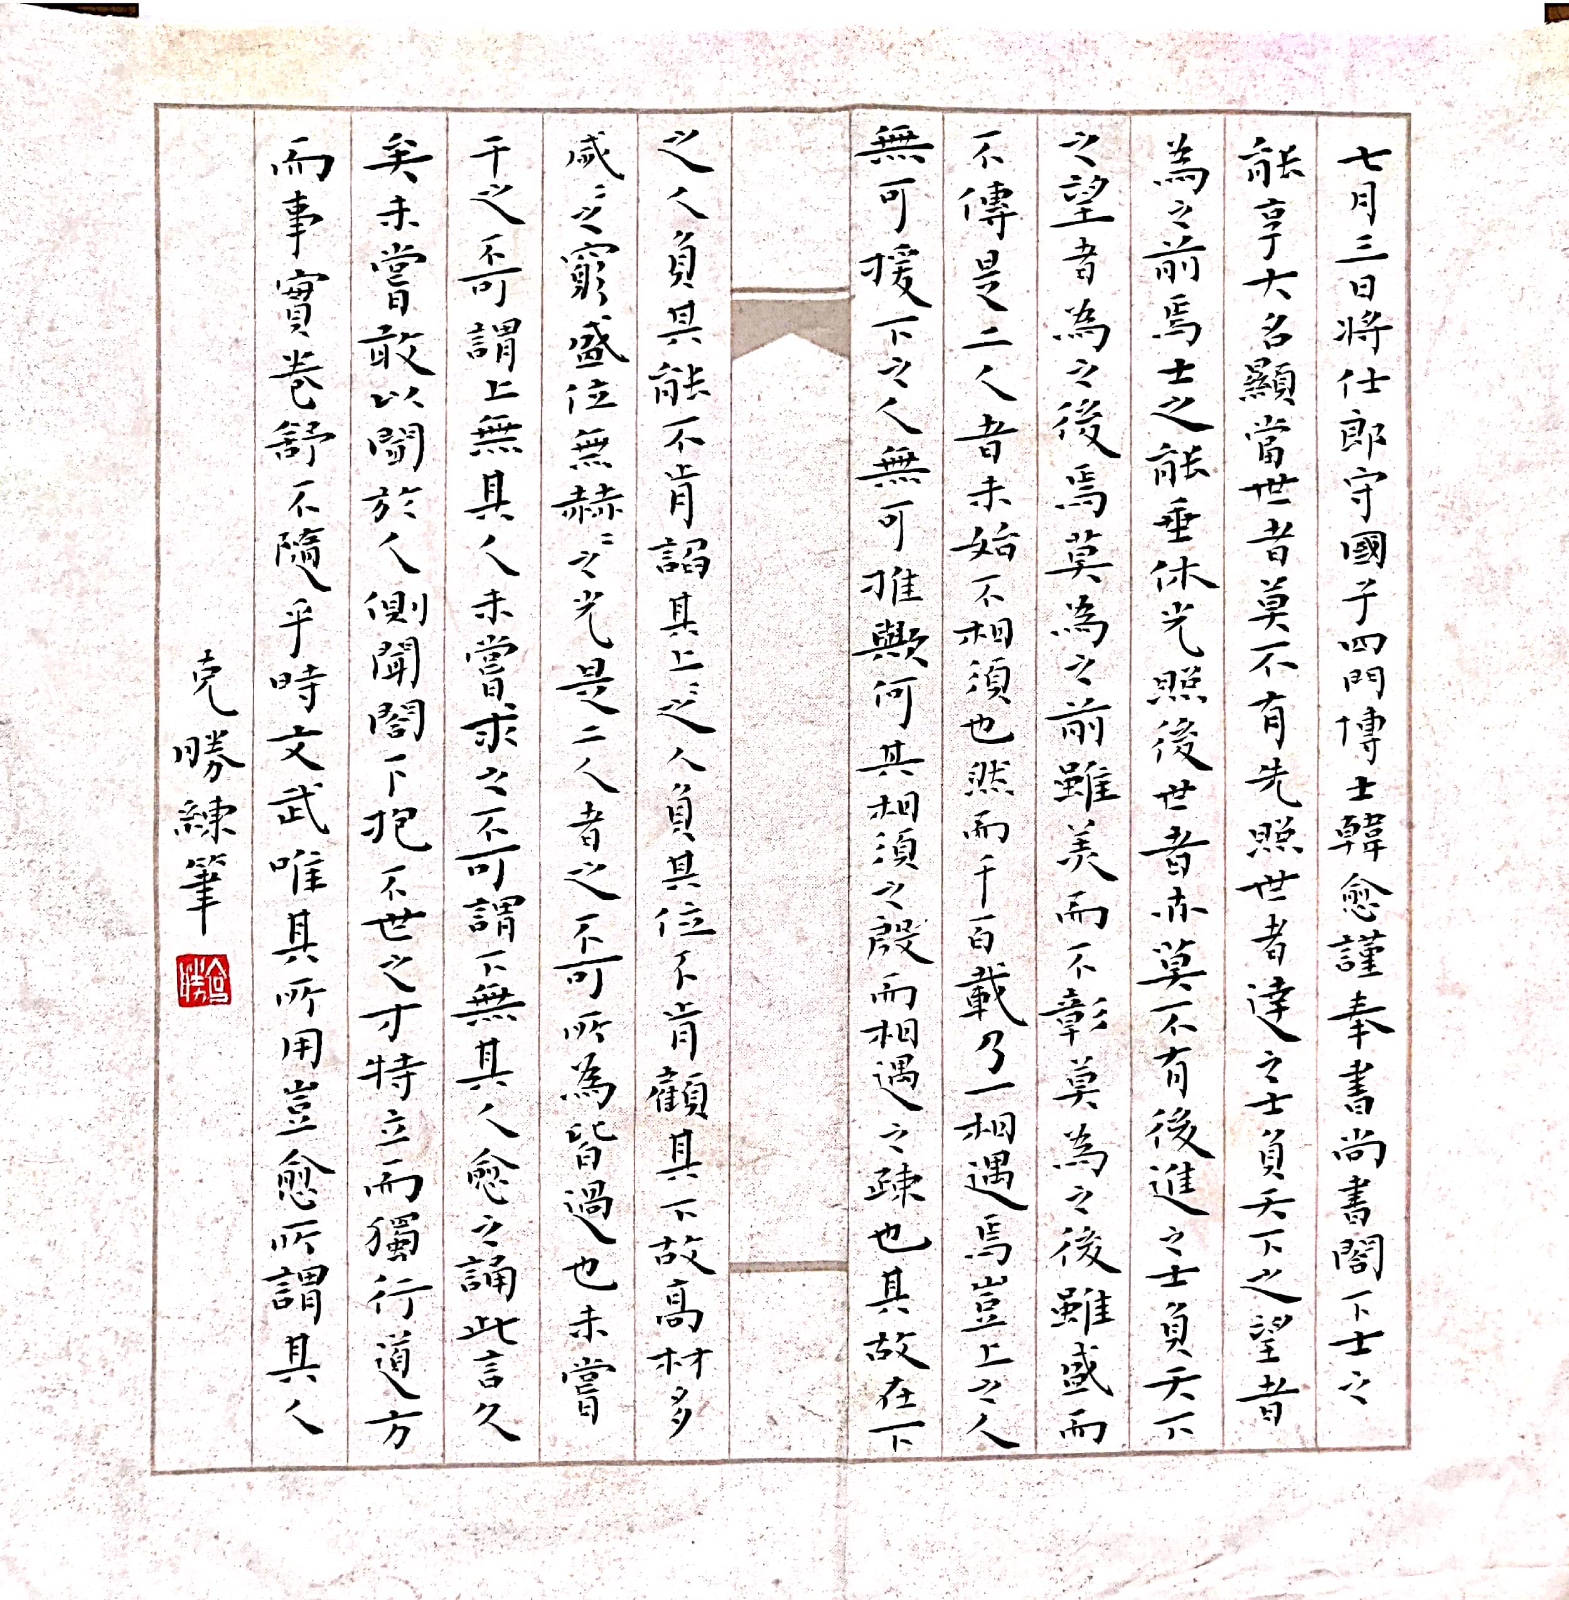 七月三日將仕郎守國子四門博士韓愈謹奉書尚書閤下士之
能享大名顯當世者莫不有先照世者達之士負天下之望者
為之前焉士之能垂休光照後世者亦莫不有後進之士負天下
之望者為之後焉莫為之前雖美而不彰莫為之後雖盛而
不傳是二人者未始不相須也然而千百載乃一相遇焉豈上之人
無可援下之人無可推歟何其相須之殷而相遇之疎也其故在下
之人負其能不肯諂其上〻之人負其位不肯顧其下故高材多
戚〻之窮盛位無赫〻之光是二人者之不可所為皆過也未嘗
干之不可謂上無其人未嘗求之不可謂下無其人愈之誦此言久
矣未嘗敢以聞於人側聞閤下抱不世之才特立而獨行道方
而事實卷舒不隨乎時文武唯其所用豈愈所謂其人
克勝練筆